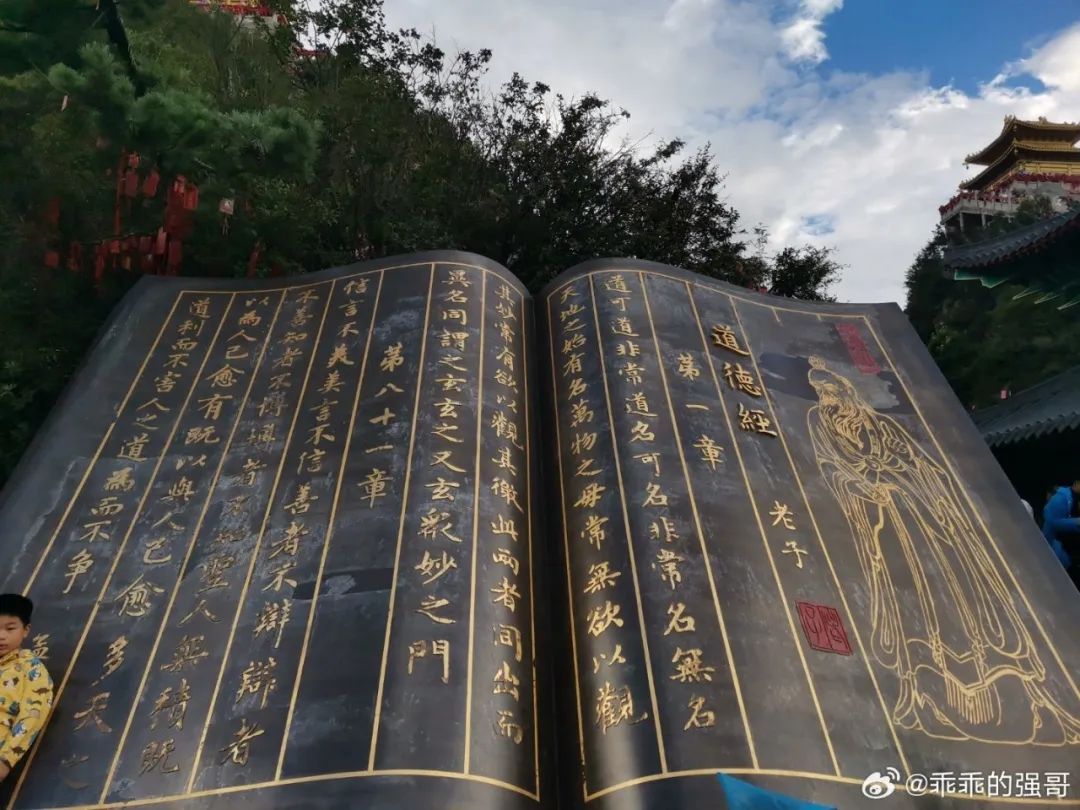 道德經
老子
第一章
道可道非常道名可名非常名無名
天地之始有名萬物之母常無欲以觀
其妙常有欲以觀其徼此兩者同出而
異名同謂之玄玄之又玄衆妙之門
第八十一章
信言不美美言不信善者不辯辯者
不善知者不博博者不知聖人無積既
以為人己愈有既以與人己愈多天之
道利而不害人之道為而不争
@乖乖的强哥